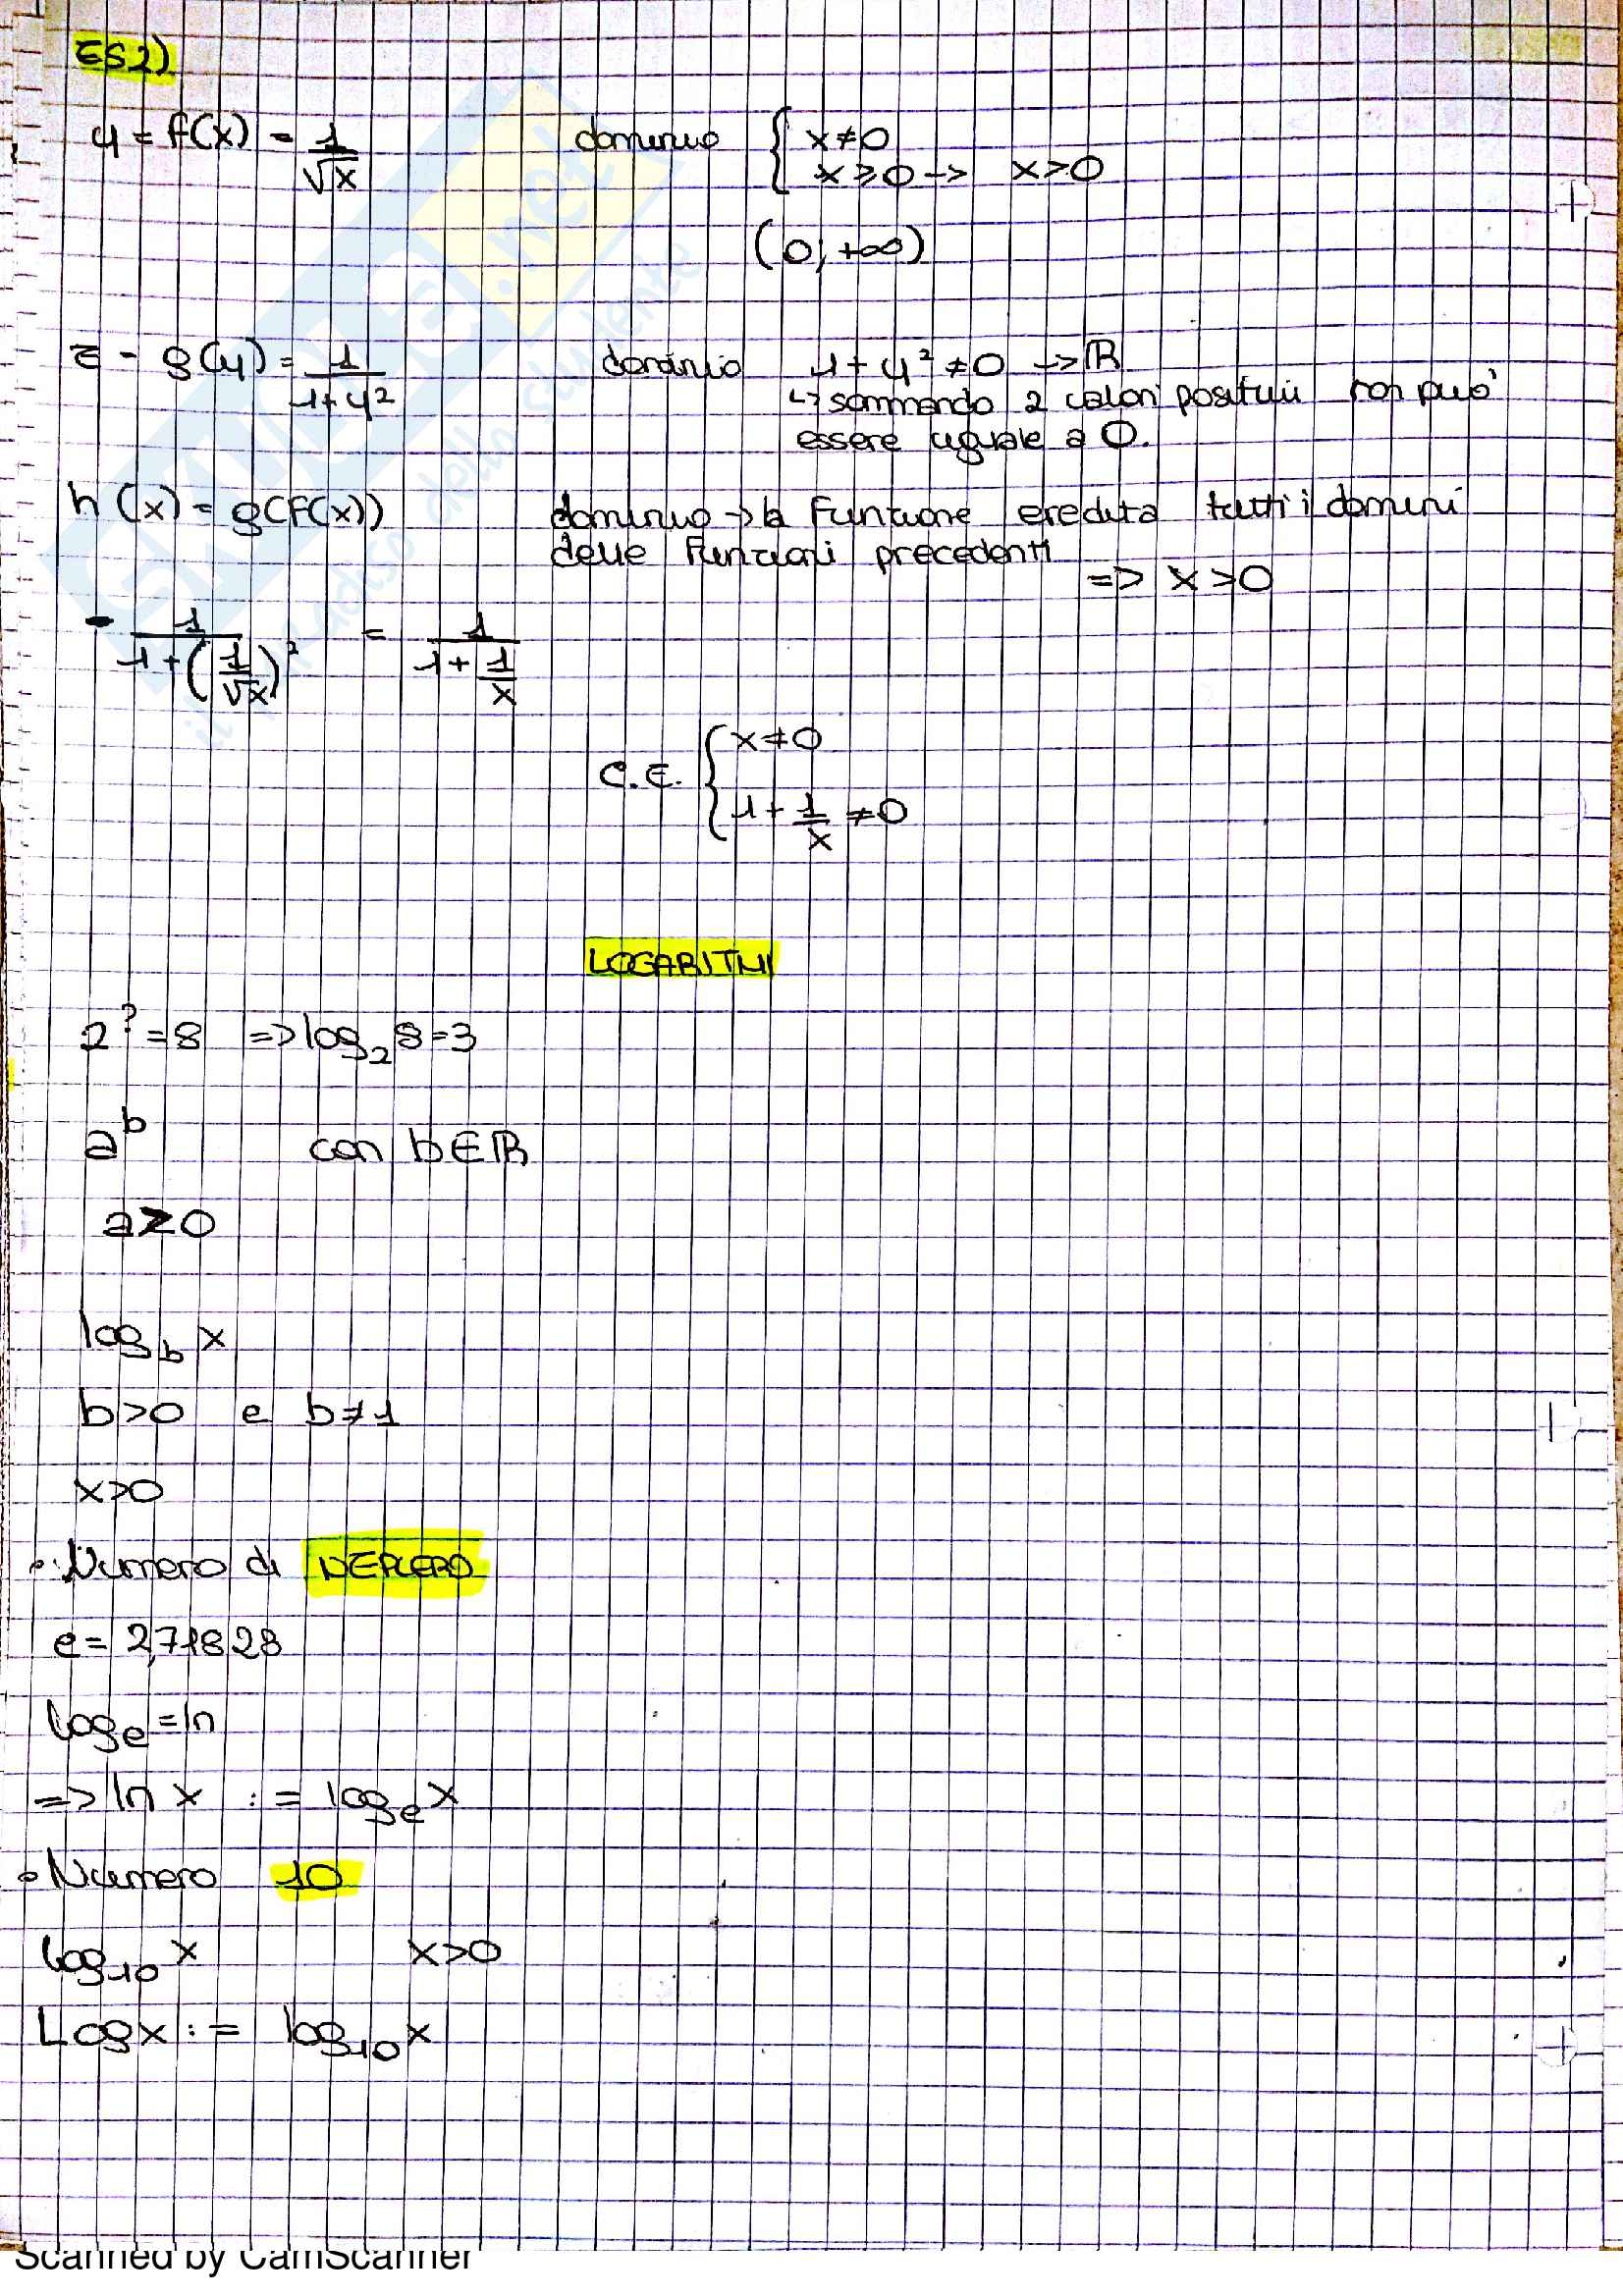 ES2)
y = f(x) = 1/√x dominio { x≠0
x⩾0 -> x>0
(0; +∞)
z = g(y) = 1/(1+y²) dominio 1+y² ≠0 -> ℝ
↳ sommando 2 valori positivi non può
essere uguale a 0.
h(x) = g(f(x)) dominio -> la funzione eredita tutti i domini
delle funzioni precedenti
=> x>0
= 1/(1+(1/√x)²) = 1/(1+1/x)
C.E. { x≠0
1+1/x ≠0
LOGARITMI
2^? = 8 => log₂ 8=3
a^b con b∈ℝ
a≥0
log_b x
b>0 e b≠1
x>0
• Numero di NEPLERO
e= 2,71828
log_e = ln
=> ln x := log_e x
• Numero 10
log₁₀ x x>0
Log x := log₁₀ x
SKUOLA.net
il paradiso dello studente
Scanned by CamScanner